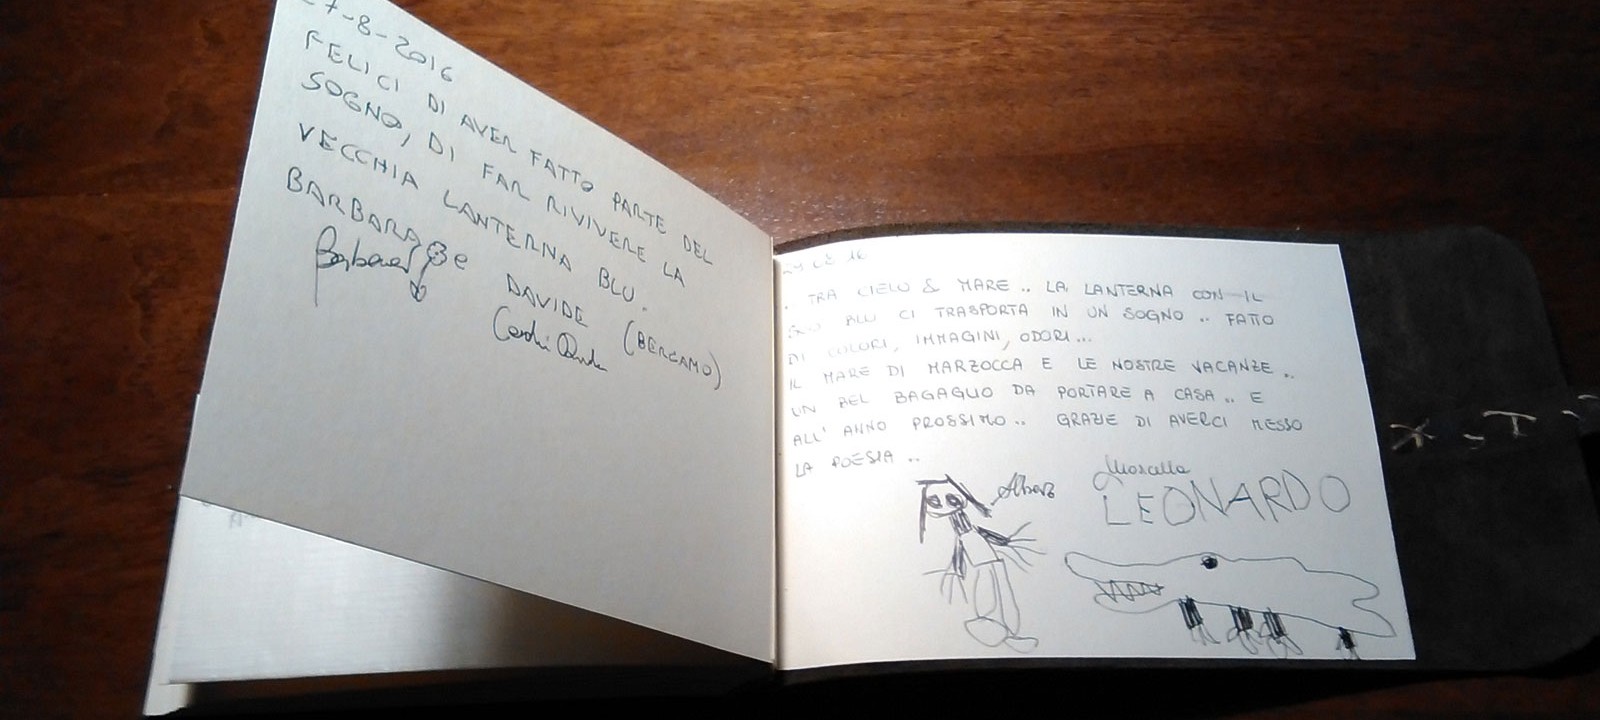 7-8-2016
FELICI DI AVER FATTO PARTE DEL
SOGNO, DI FAR RIVIVERE LA
VECCHIA LANTERNA BLU.
BARBARA e DAVIDE (BERGAMO)
.. TRA CIELO & MARE .. LA LANTERNA CON IL
BLU CI TRASPORTA IN UN SOGNO .. FATTO
DI COLORI, IMMAGINI, ODORI...
IL MARE DI MARZOCCA E LE NOSTRE VACANZE ..
UN BEL BAGAGLIO DA PORTARE A CASA .. E
ALL' ANNO PROSSIMO .. GRAZIE DI AVERCI MESSO
LA POESIA ..
LEONARDO